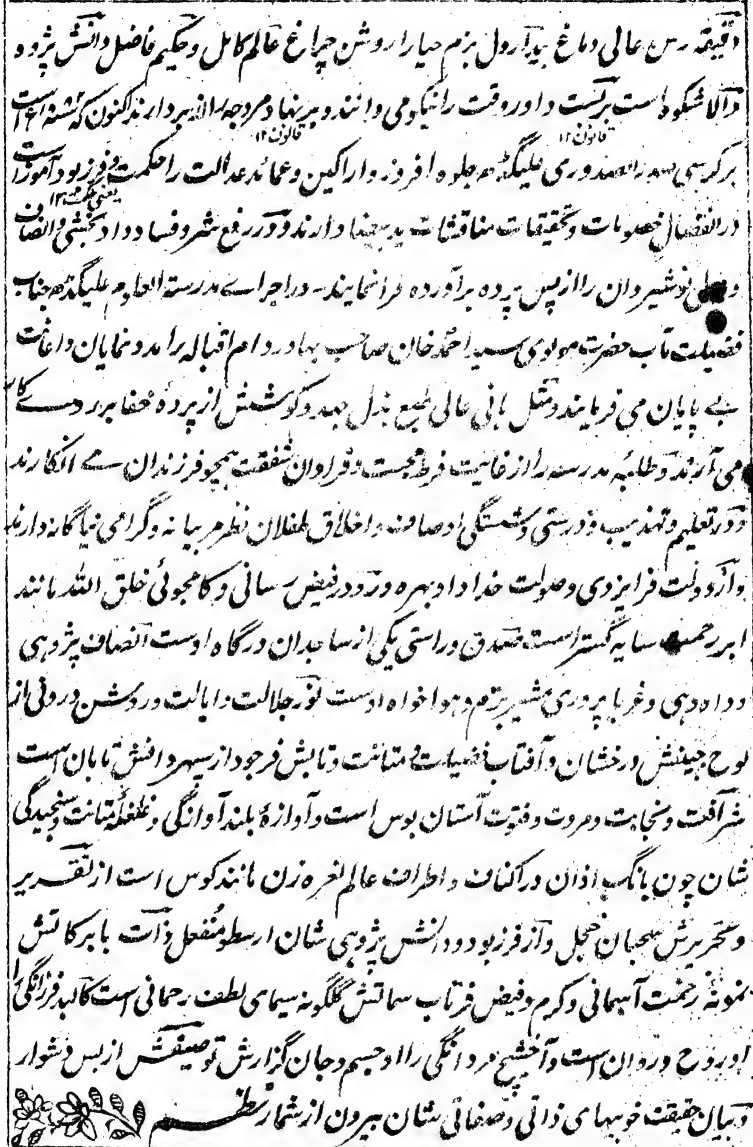 دقیقه رس عالی دماغ بیدار دل بزم حیا را روشن چراغ عالم کامل و حکیم فاضل دانش پژوه
والا شکوه است داور وقت را نیکو می دانند و بر نهاد مروجه را اکنون که سنه است
قانون ۱۲ قانون ۱۲
بر کرسی صدر الصدوری علیگڈھ جلوه افروز و اراکین و عمائد عدالت را حکمت و فرزبود آموز است
یعنی حکمت ۱۲
در انفصال خصومات و تحقیقات مناقشات ید بیضا دارند و در رفع شر و فساد و داد بخشی و انصاف
نوشیروان را از پس پرده برآورده فرا نمایند۔ در اجراے مدرسة العلوم علیگڈھ جناب
فضیلت مآب حضرت مولوی سید احمد خان صاحب بهادر دام اقباله را مدد نمایان و اعانت
بے پایان می فرمایند و مثل بانی عالی طبع بذل جهد و کوشش از پردهٔ خفا بر روے کار
می آرند و طلبهٔ مدرسه را از غایت فرط محبت و فراوان شفقت همچو فرزندان مے انگارند
و در تعلیم و تهذیب و درستی و شستگی اوصاف و اخلاق طفلان نظر مربیانه و گرامی نیاگانه دارند
و از دولت فر ایزدی و صولت خداداد بهره ور و در فیض رسانی و کامجوئی خلق الله مانند
ابر رحمت سایه گستر است صدق و راستی یکی از ساجدان درگاه اوست انصاف پژوهی
و داد دهی و غربا پروری مشیر بزم و هوا خواه اوست نور جلالت و ایالت و روشن درونی از
لوح جبینش درخشان و آفتاب فضیلت و متانت و تابش فرجود از سپهر دانش تابان است
شرافت و نجابت و مروت و فتوت آستان بوس است و آوازهٔ بلند آوازگی و غلغلهٔ متانت و سنجیدگی
شان چون بانگ اذان در اکناف و اطراف عالم نعره زن مانند کوس است از تقریر
و تحریرش سحبان خجل و از فرزبود و دانش پژوهی شان ارسطو منفعل ذات بابرکاتش
نمونهٔ رحمت آسمانی و کرم و فیض فرتاب سماتش گلگونه سیمای لطف رحمانی است کالبد فرزانگی را
او روح و روان است و آخشیج مردانگی را او جسم و جان گزارش توصیفش از بس دشوار
و بیان حقیقت خوبیهای ذاتی و صفاتی شان بیرون از شمار نظم